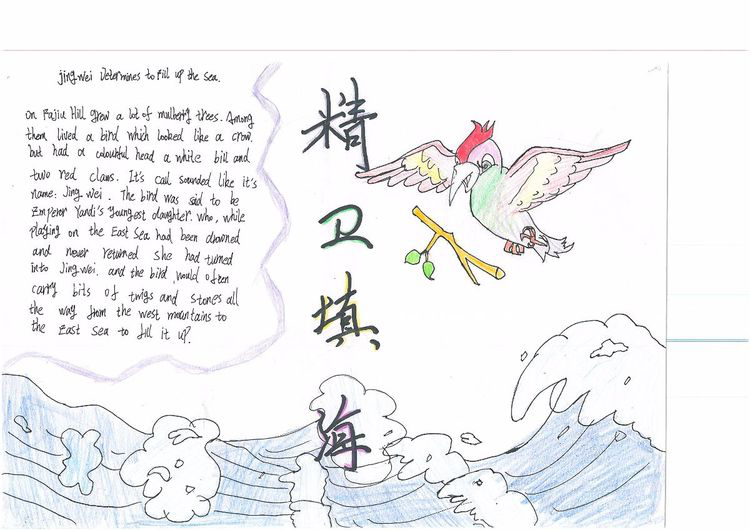 Jingwei Determines to Fill up the Sea.
on Fajiu Hill grew a lot of mulberry trees. Among
them lived a bird which looked like a crow
but had a colourful head a white bill and
two red claws. It's call sounded like it's
name: Jing wei. The bird was said to be
Emperor Yandi's Youngest daughter. who, while
playing on the East Sea had been drowned
and never returned she had turned
into Jingwei. and the bird would often
carry bits of twigs and stones all
the way from the west mountains to
the East Sea to fill it up.
精
卫
填
海